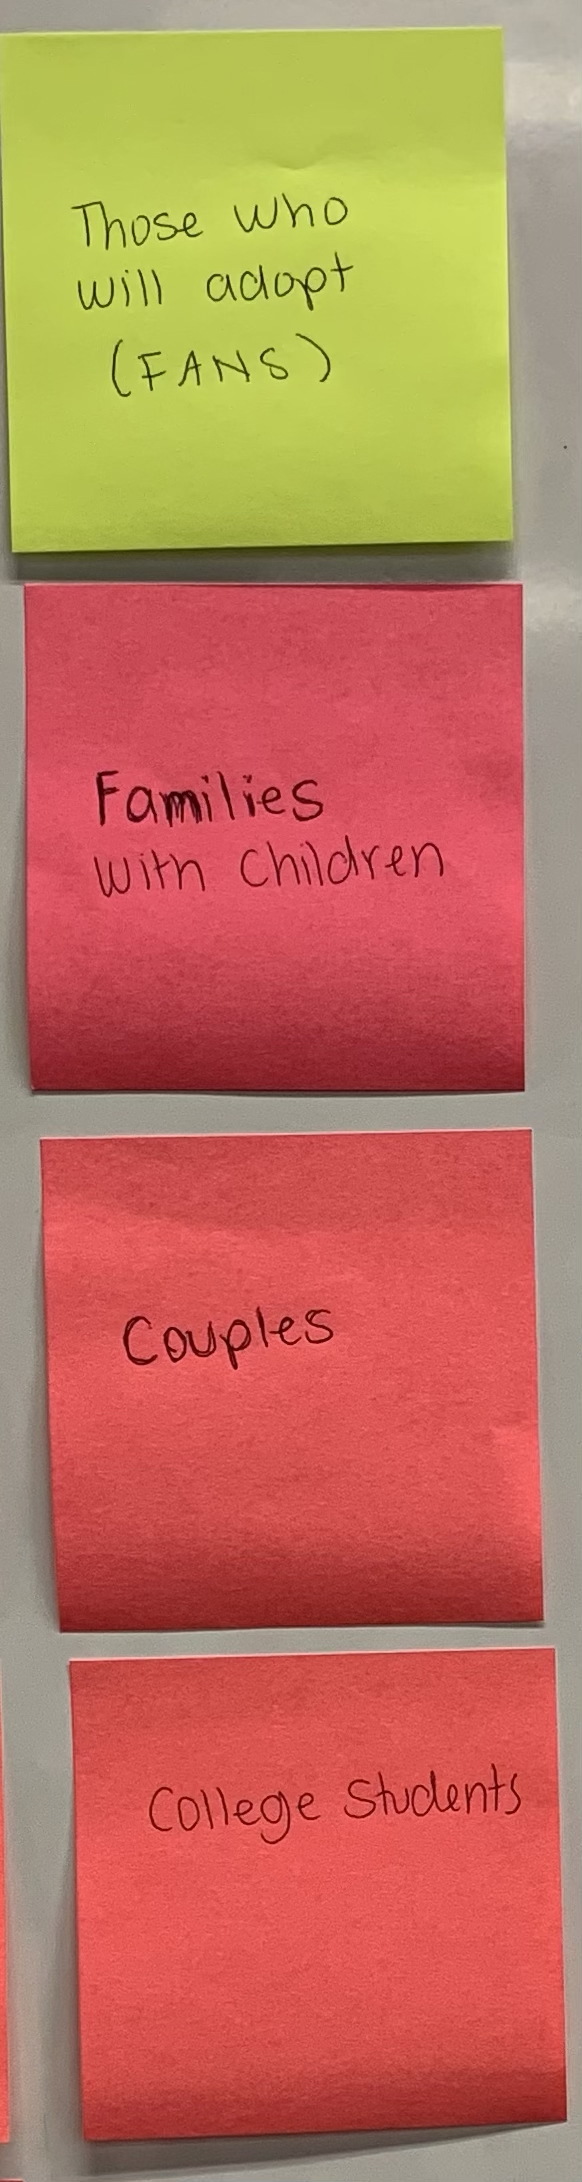 Those who
will adopt
(FANS)
Families
with children
Couples
College Students